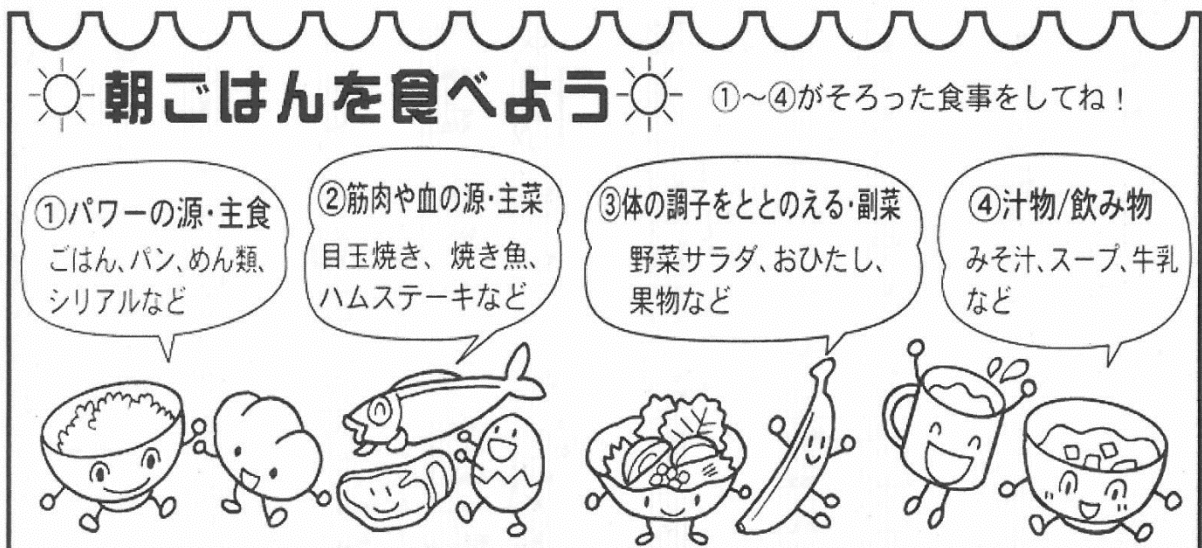 朝ごはんを食べよう
①～④がそろった食事をしてね！
①パワーの源・主食
ごはん、パン、めん類、
シリアルなど
②筋肉や血の源・主菜
目玉焼き、焼き魚、
ハムステーキなど
③体の調子をととのえる・副菜
野菜サラダ、おひたし、
果物など
④汁物/飲み物
みそ汁、スープ、牛乳
など